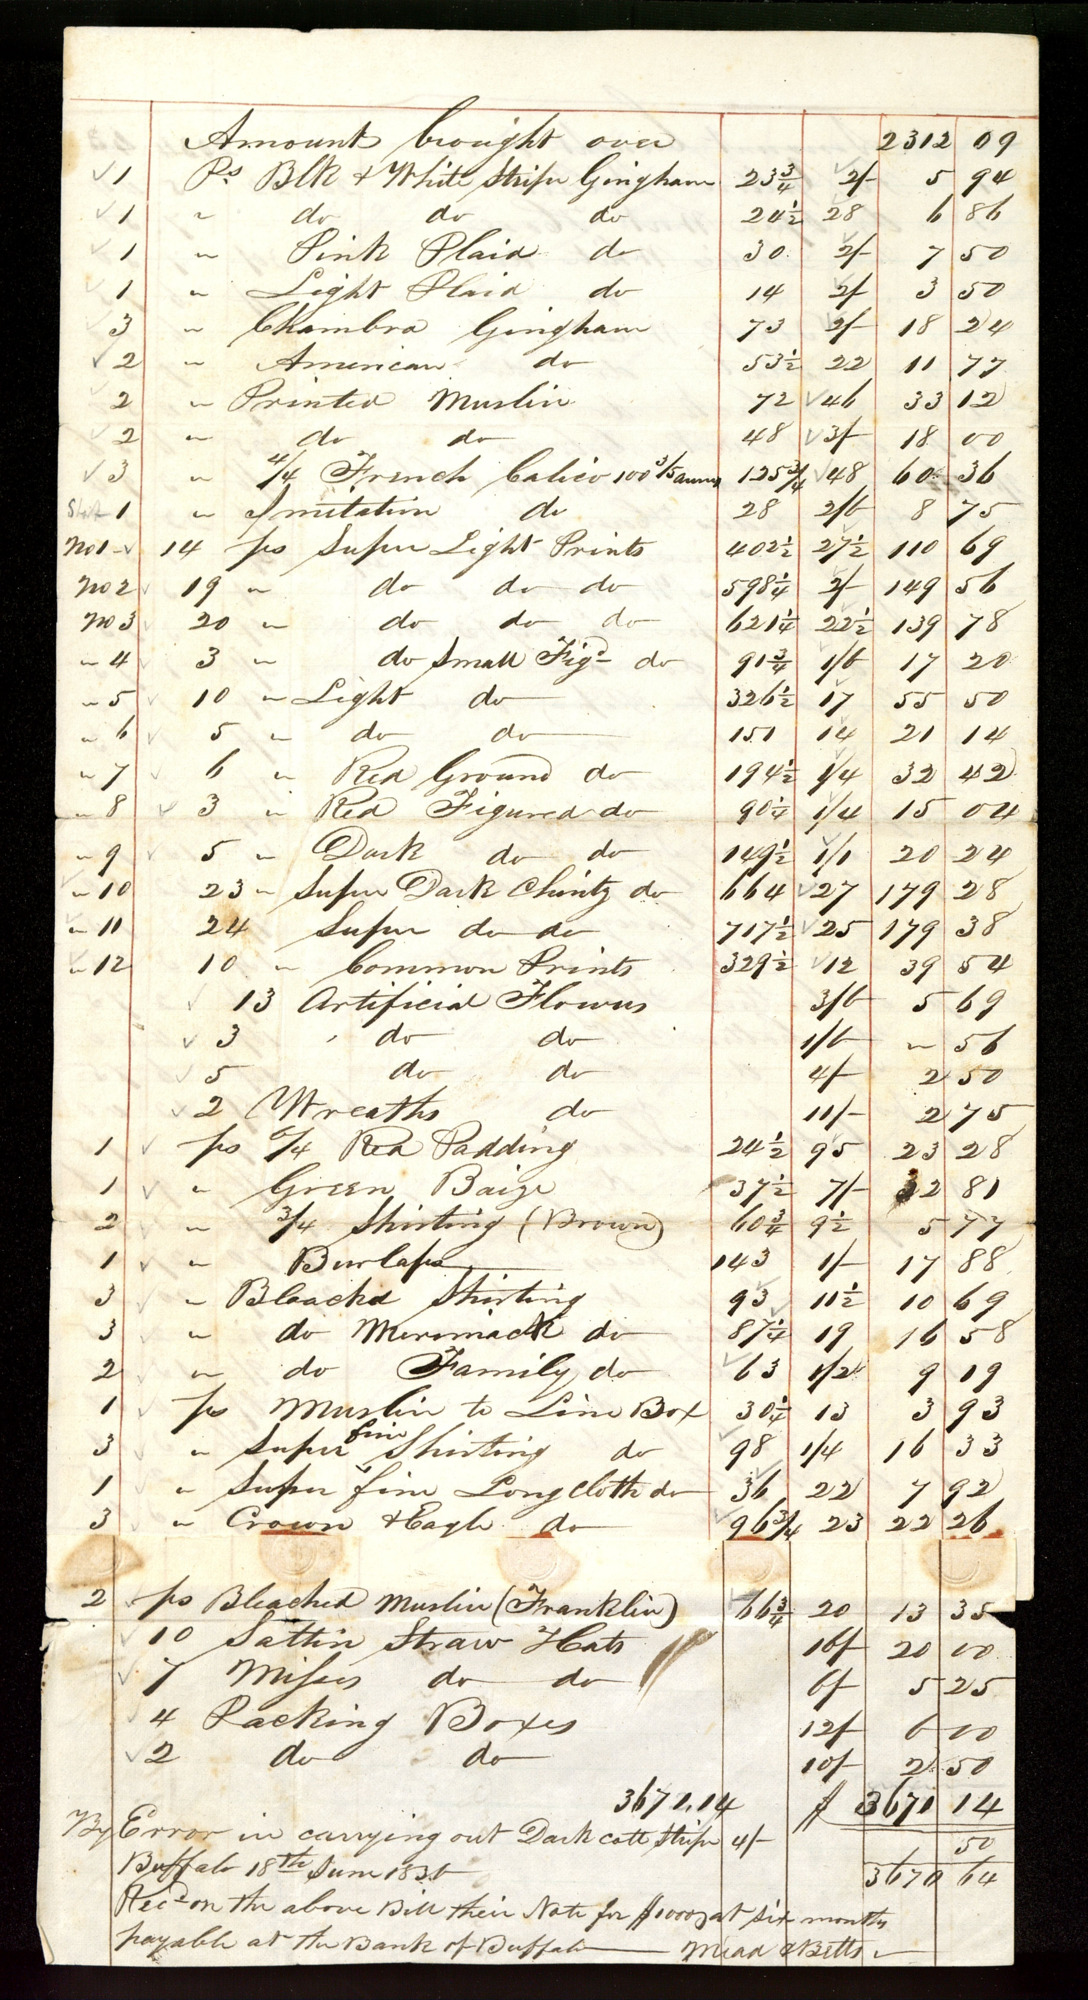 Amount brought over 2312 09
1 Ps Blk & White Stripe Gingham 23¾ 2/- 5 94
1 " do do do 24½ 28 6 86
1 " Pink Plaid do 30 2/- 7 50
1 " Light Plaid do 14 2/- 3 50
3 " Chambra Gingham 73 2/- 18 24
2 " American do 53½ 22 11 77
2 " Printed Muslin 72 46 33 12
2 " do do 48 3/- 18 00
3 " 4/4 French Calico 100 3/5 aunes 125¾ 48 60 36
1 " Imitation do 28 2/6 8 75
No 1 14 ps Super Light Prints 402½ 27½ 110 69
No 2 19 " do do do 598¼ 2/- 149 56
No 3 20 " do do do 621¼ 22½ 139 78
" 4 3 " do Small Figd do 91¾ 1/6 17 20
" 5 10 " Light do 326½ 17 55 50
" 6 5 " do do 151 14 21 14
" 7 6 " Red Ground do 194½ 1/4 32 42
" 8 3 " Red Figured do 90¼ 1/4 15 04
" 9 5 " Dark do do 149½ 1/1 20 24
" 10 23 " Super Dark Chintz do 664 27 179 28
" 11 24 Super do do 717½ 25 179 38
" 12 10 " Common Prints 329½ 12 39 54
13 Artificial Flowers 3/6 5 69
3 do do 1/6 " 56
5 do do 4/- 2 50
2 Wreaths do 11/- 2 75
1 ps 6/4 Red Padding 24½ 95 23 28
1 " Green Baize 37½ 7/- 32 81
2 " 3/4 Shirting (Brown) 60¾ 9½ 5 77
1 " Burlaps 143 1/- 17 88
3 " Bleachd Shirting 93 11½ 10 69
3 " do Merrimack do 87¼ 19 16 58
2 " do Family do 63 1/2 9 19
1 ps Muslin to Line Box 30¼ 13 3 93
3 " Super fine Shirting do 98 1/4 16 33
1 " Super fine Long cloth do 36 22 7 92
3 " Crown & Eagle do 96¾ 23 22 26
2 ps Bleached Muslin (Franklin) 66¾ 20 13 35
10 Sattin Straw Hats 16/- 20 00
7 Misses do do 6/- 5 25
4 Packing Boxes 12/- 6 00
2 do do 10/- 2 50
3671.14 $ 3671 14
By Error in carrying out Dark cott Stripe 4/- 50
Buffalo 18th June 1836 3670 64
Recd on the above Bill their Note for $1000 at six months
payable at the Bank of Buffalo Mead & Betts